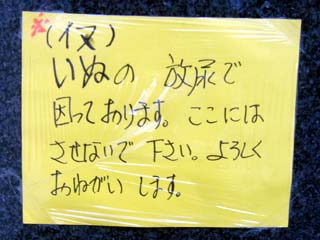 ※(イヌ)
いぬの 放尿で
困っております。ここには
させないで 下さい。よろしく
おねがい します。